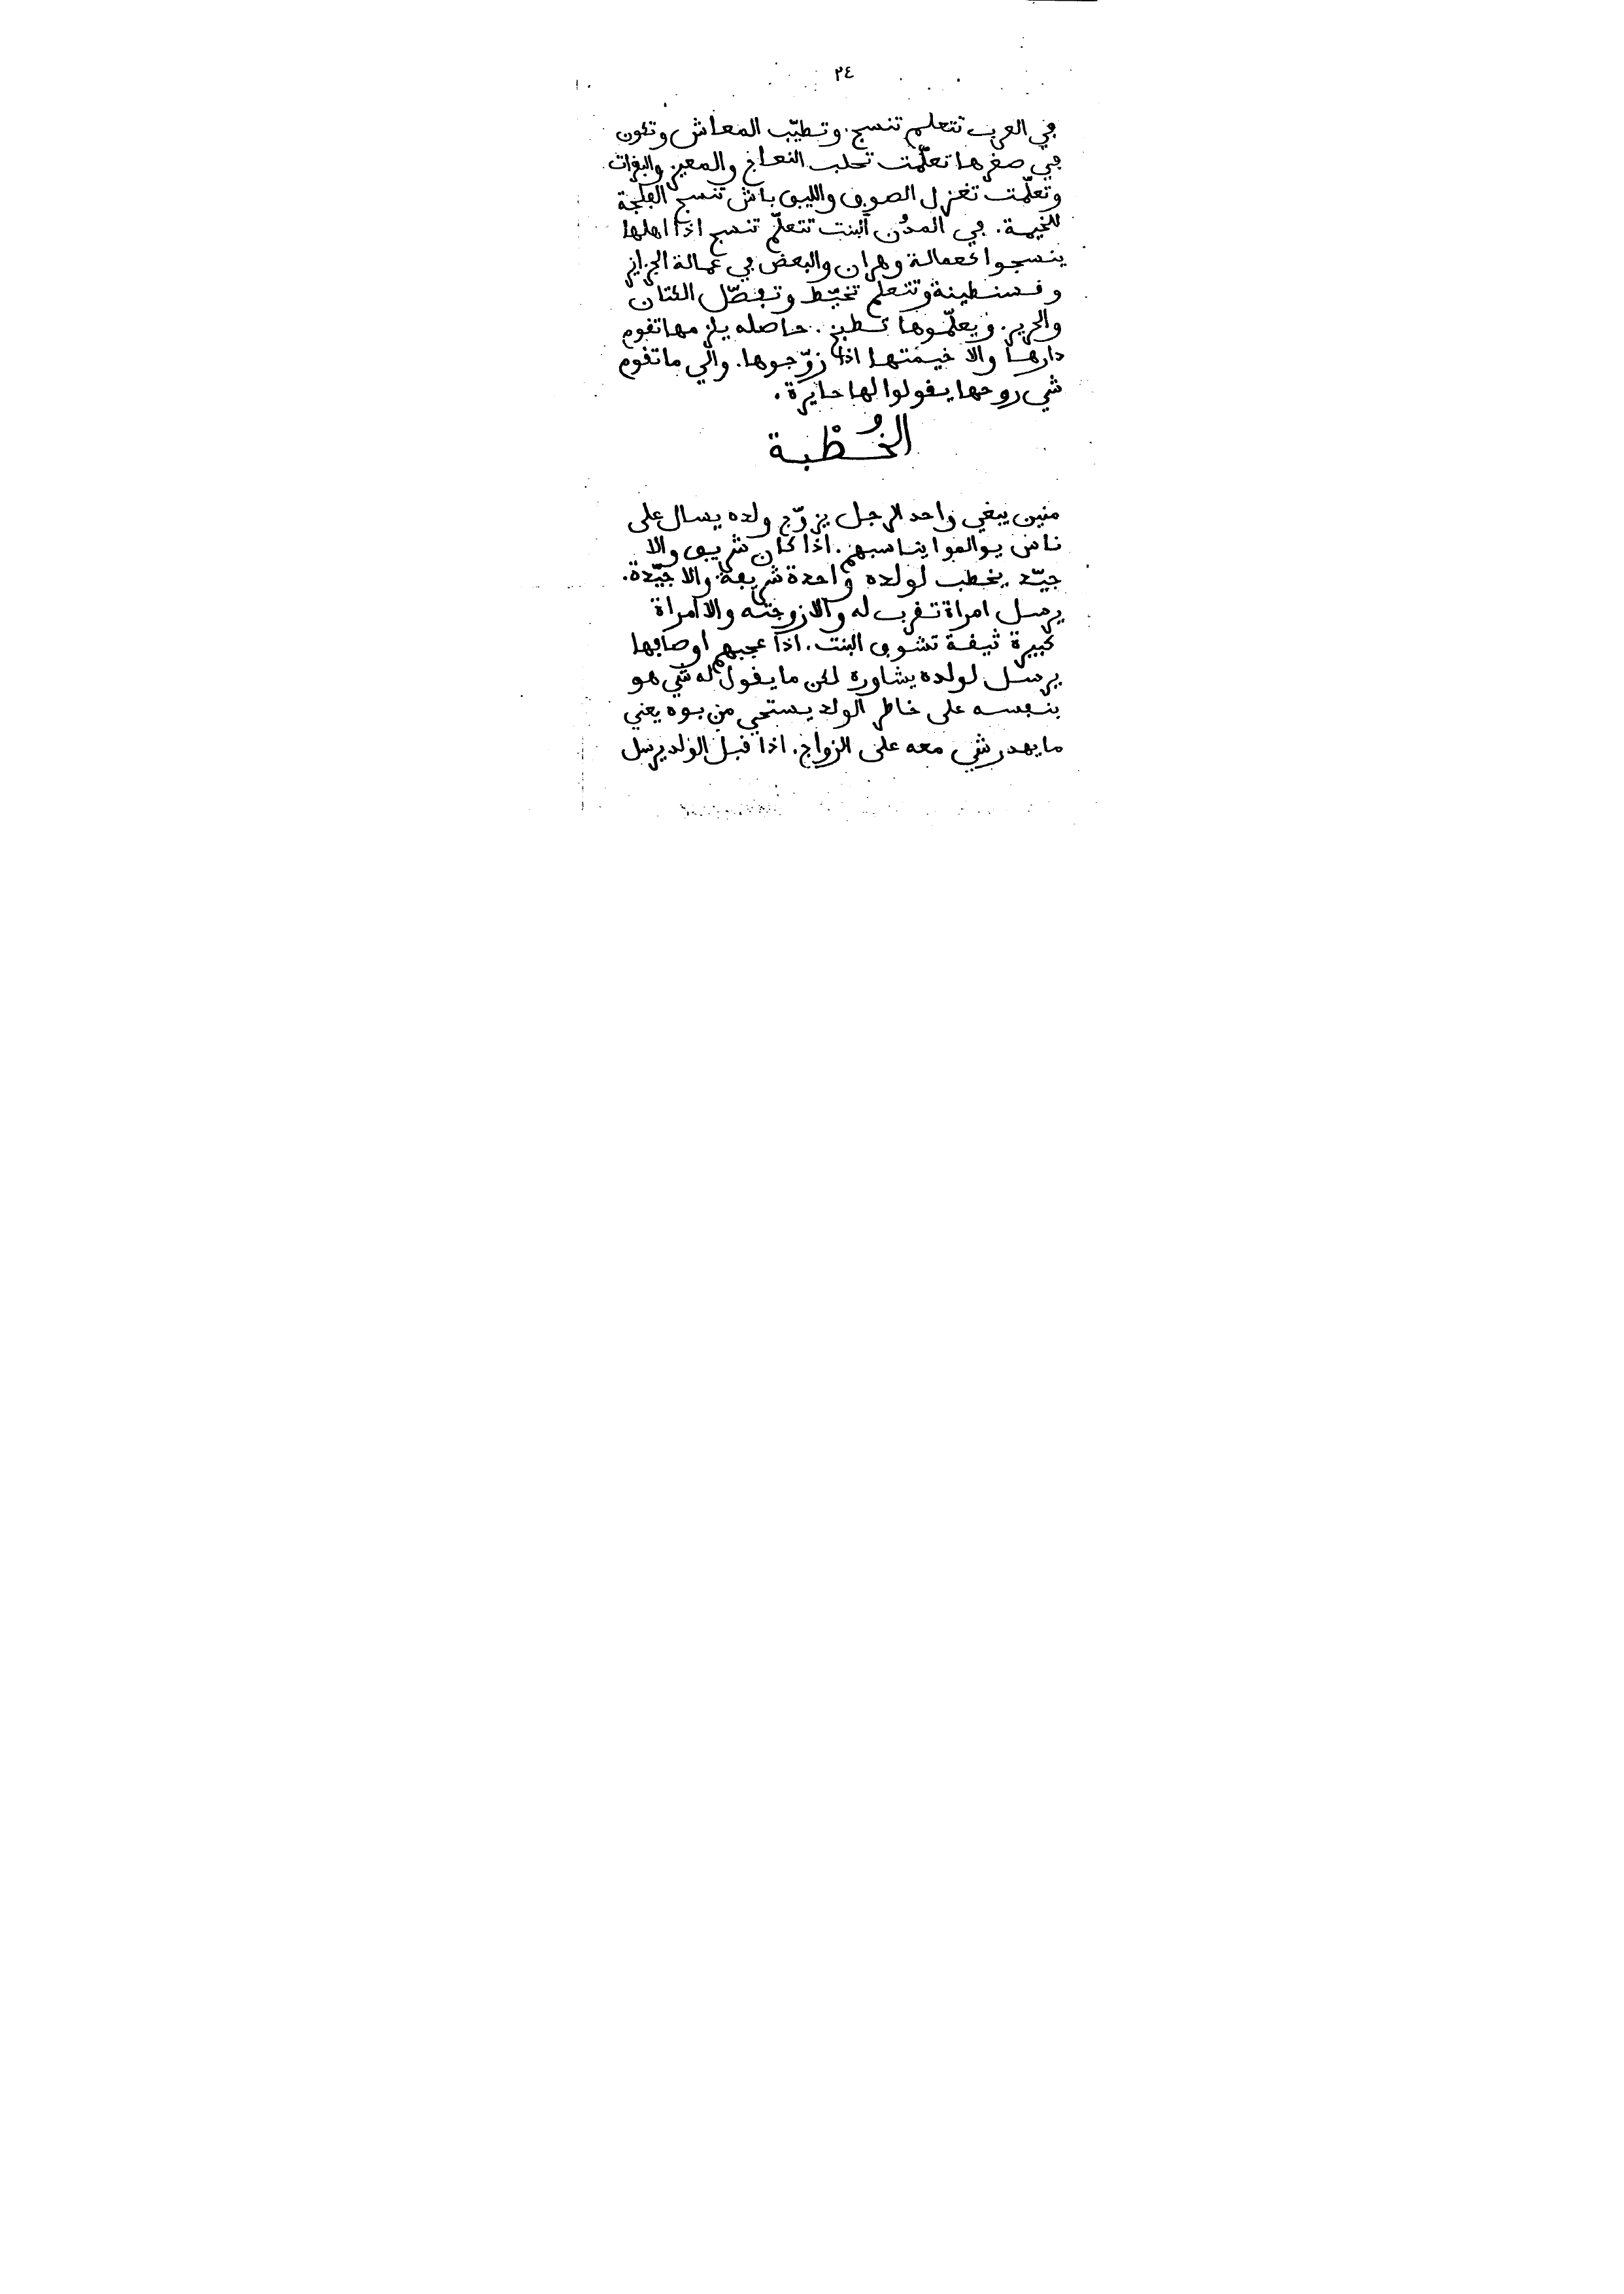 ٢٤
في العرب تتعلم تنسج. وتطيّب المعاش وتكون
في صغرها تعلّمت تحلب النعاج والمعيز والبقرات
وتعلّمت تغزل الصوف والليف باش تنسج الفلجة
للخيمة. في المدُن البنت تتعلّم تنسج اذا اهلها
ينسجوا كعمالة وهران والبعض في عمالة الجزاير
وقسنطينة وتتعلم تخيّط وتفصّل الكتان
والحرير. ويعلّموها تطبخ. حاصله يلزمها تقوم
دارها والا خيمتها اذا زوّجوها. والي ما تقوم
شي روحها يقولوا لها حايرة.
الخُطْبة
منين يبغي واحد الرجل يزوّج ولده يسال على
ناس يوالموا يناسبهم. اذا كان شريف والا
جيّد يخطب لولده واحدة شريفة والا جيّدة.
يرسل امراة تقرب له والا زوجته والا امراة
كبيرة ثيقة تشوف البنت. اذا عجبهم اوصافها
يرسل لولده يشاوره لكن ما يقول له شي هو
بنفسه على خاطر الولد يستحي من بوه يعني
ما يهدر شي معه على الزواج. اذا قبل الولد يرسل